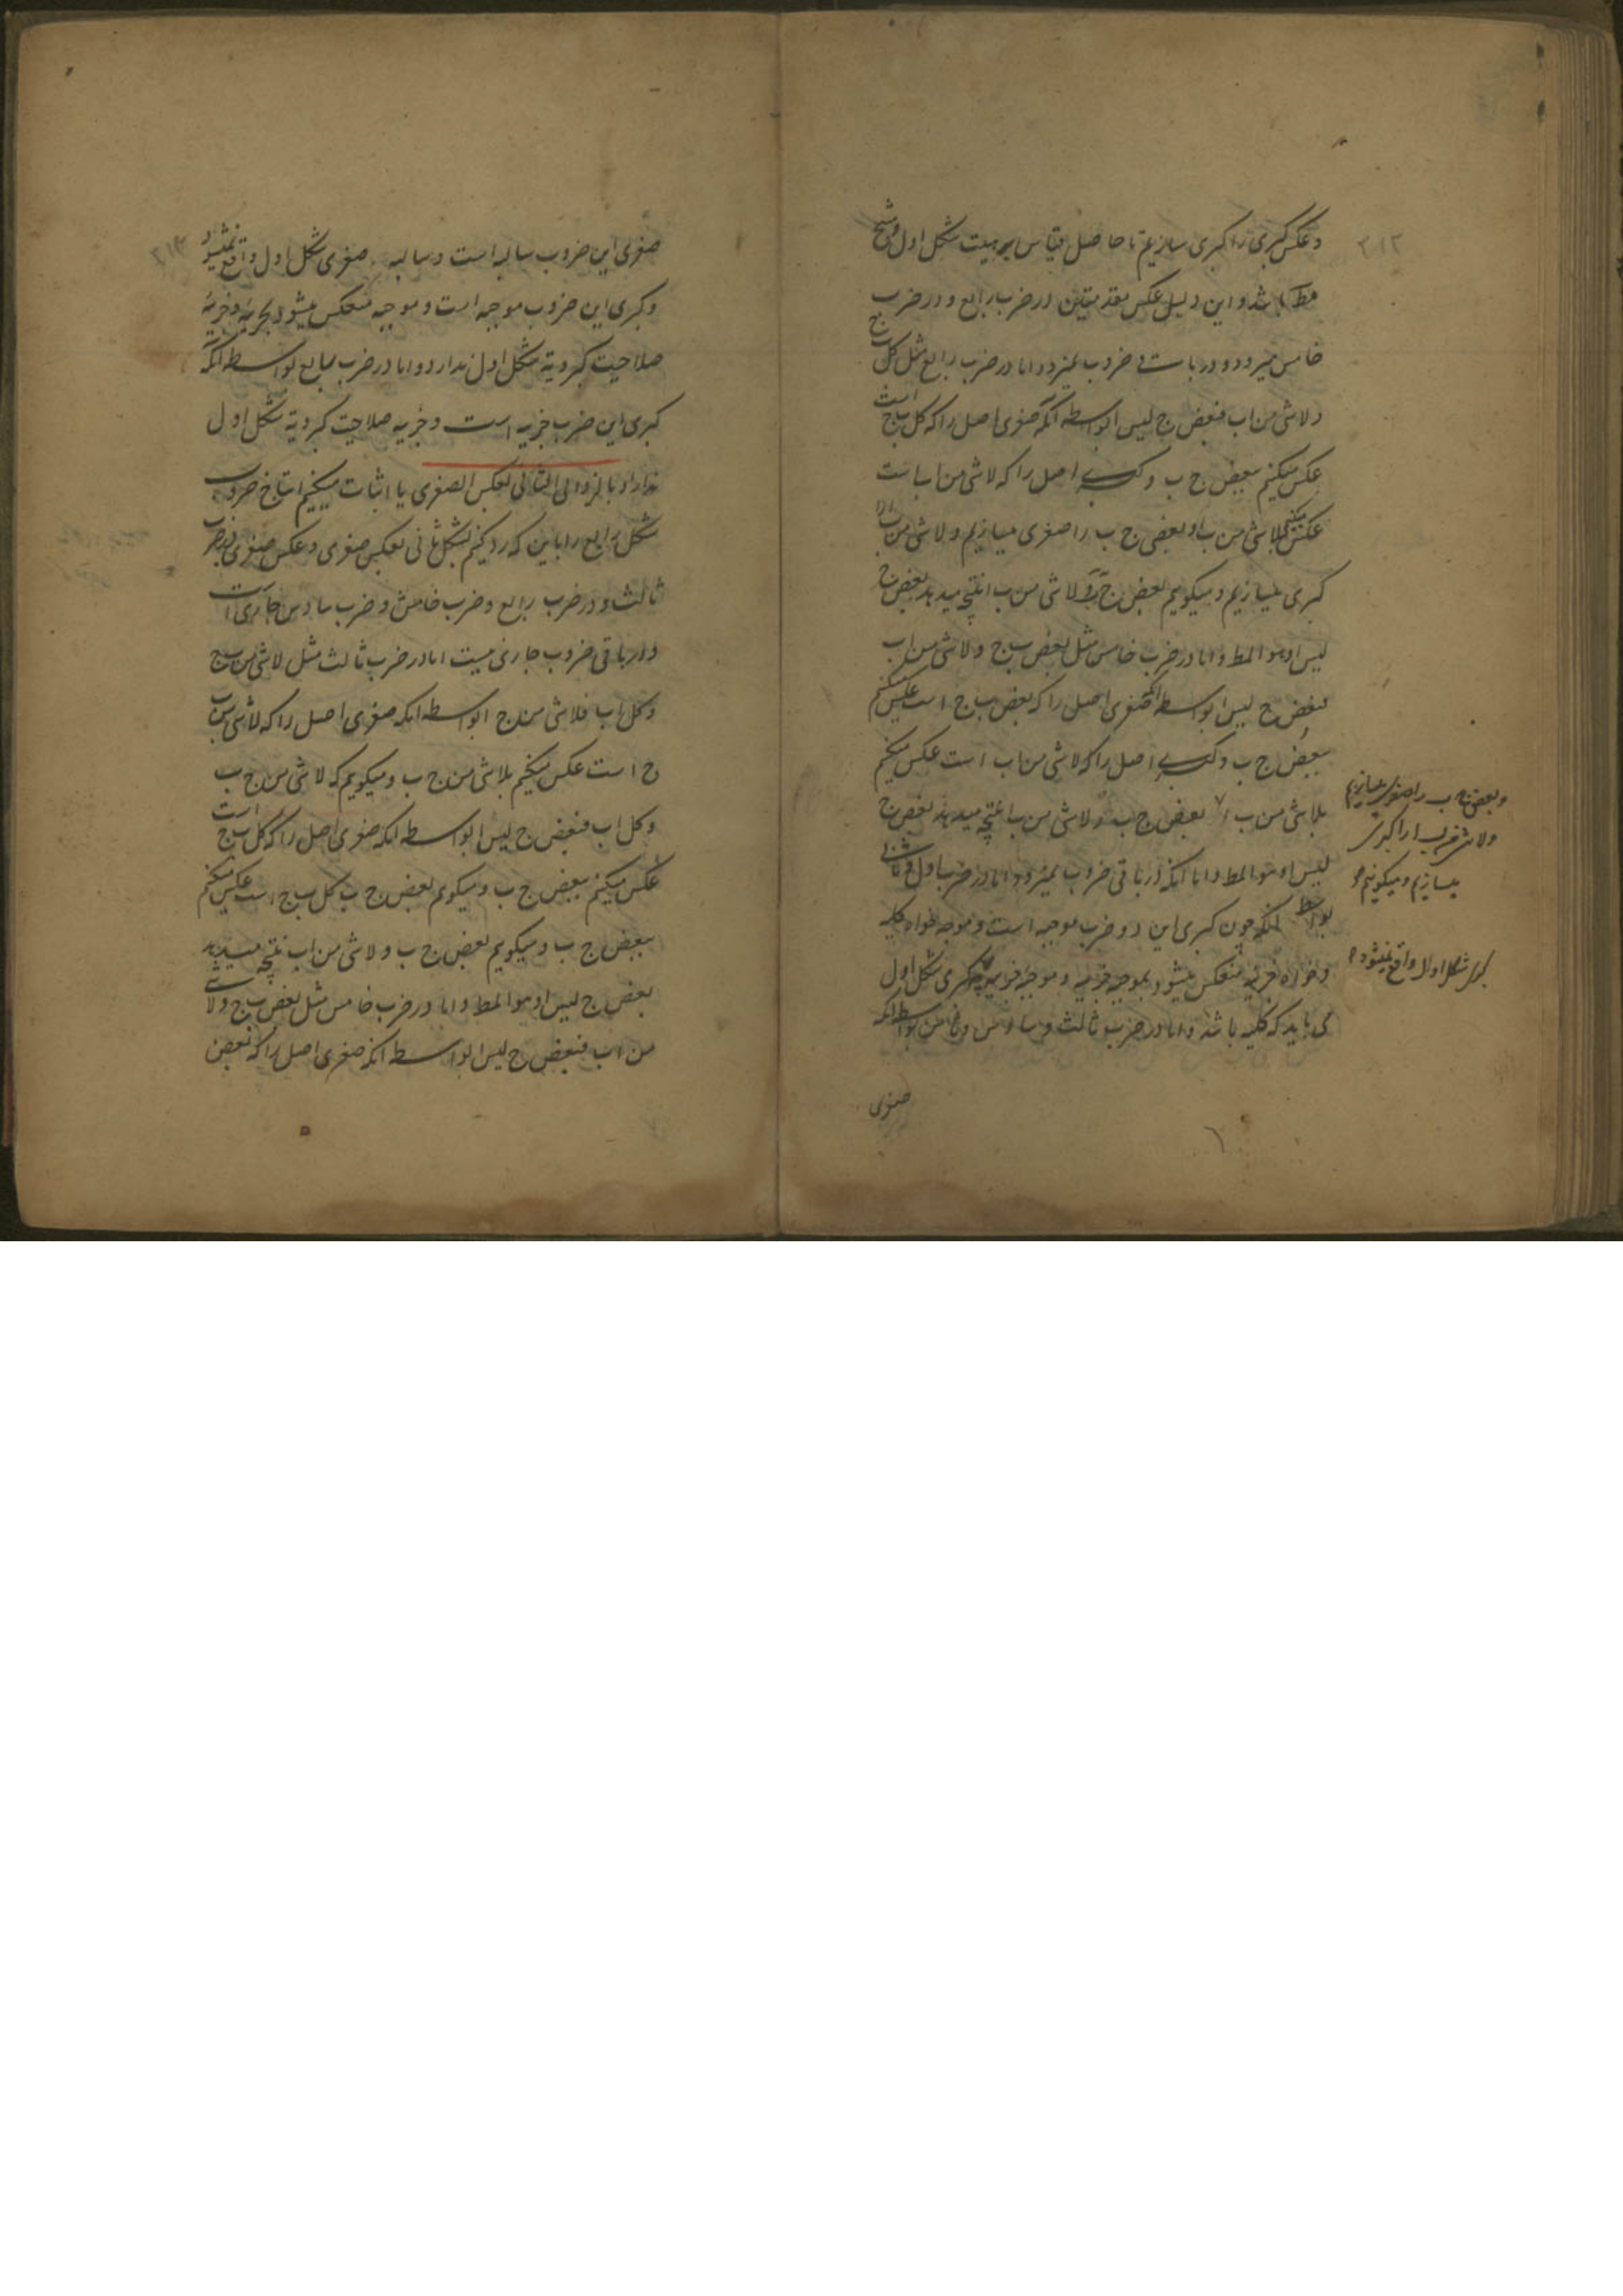 ۲۱۲
و عکس کبری را کبری سازیم تا حاصل قیاس بر هیئت شکل اول و منتج
مط باشد و این دلیل عکس مقدمتین در ضرب رابع و در ضرب
خامس میرود و در باقی ضروب نمیرود اما در ضرب رابع مثل کل ب ج
و لاشی من اب فبعض ج لیس ا بواسطه آنکه صغری اصل را که کل ب ج است
عکس میکنیم ببعض ج ب و کبرای اصل را که لاشی من اب است
عکس میکنیم بلاشی من ب ا و بعض ج ب را صغری میسازیم و لاشی من ب ا را
کبری میسازیم و میکویم بعض ج ب و لاشی من ب ا نتیجه میدهد بعض ج
لیس ا و هو المط و اما در ضرب خامس مثل بعض ب ج و لاشی من اب
فبعض ج لیس ا بواسطه آنکه صغری اصل را که بعض ب ج است عکس میکنیم
ببعض ج ب و کبرای اصل را که لاشی من اب است عکس میکنیم
بلاشی من ب ا بعض ج ب و لاشی من ب ا نتیجه میدهد بعض ج
و بعض ج ب را صغری میسازیم
ولاشی من ب ا را کبری
میسازیم و میکوئیم
لیس ا و هو المط و اما آنکه در باقی ضروب نمیرود اما در ضرب اول و ثانی
بواسطه آنکه چون کبری این دو ضرب موجبه است و موجبه خواه کلیه
و خواه جزئیه منعکس میشود بموجبه جزئیه و موجبه جزئیه کبری شکل اول
کبرای شکل اول واقع نمیشود
می باید که کلیه باشد و اما در ضرب ثالث و سادس و ثامن بواسطه آنکه
صغری
۲۱۳
صغری این ضروب سالبه است و سالبه صغری شکل اول واقع نمیشود
و کبری این ضروب موجبه است و موجبه منعکس میشود بجزئیه و جزئیه
صلاحیت کبرویة شکل اول ندارد و اما در ضرب سابع بواسطه آنکه
کبری این ضرب جزیه است و جزیه صلاحیت کبرویة شکل اول
ندارد او بالرد الی الثانی بعکس الصغری یا اثبات میکنیم انتاج ضروب
شکل رابع را باین که رد کنیم بشکل ثانی بعکس صغری و عکس صغری در ضرب
ثالث و در ضرب رابع و ضرب خامس و ضرب سادس جاری است
و در باقی ضروب جاری نیست اما در ضرب ثالث مثل لاشی من ب ج
و کل اب فلاشی من ج ا بواسطه آنکه صغری اصل را که لاشی من ب
ج است عکس میکنیم بلاشی من ج ب و میکویم که لاشی من ج ب
و کل اب فبعض ج لیس ا بواسطه آنکه صغری اصل را که کل ب ج است
عکس میکنیم ببعض ج ب و میکویم بعض ج ب کل ب ج است عکس میکنیم
ببعض ج ب و میکویم بعض ج ب و لاشی من اب نتیجه میدهد
بعض ج لیس ا و هو المط و اما در ضرب خامس مثل بعض ب ج و لاشی
من اب فبعض ج لیس ا بواسطه آنکه صغری اصل را که بعض